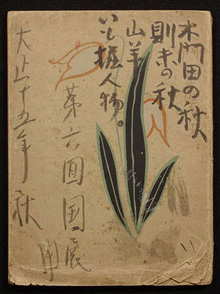 木門田の秋
則寺の秋
山羊
いも掘人物。
第六回国展
大正十五年秋